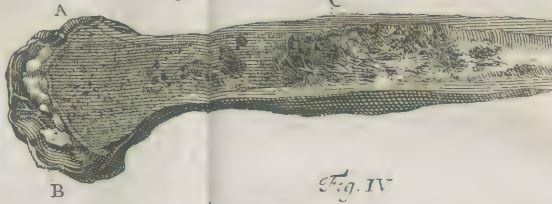 A
B
Fig. IV